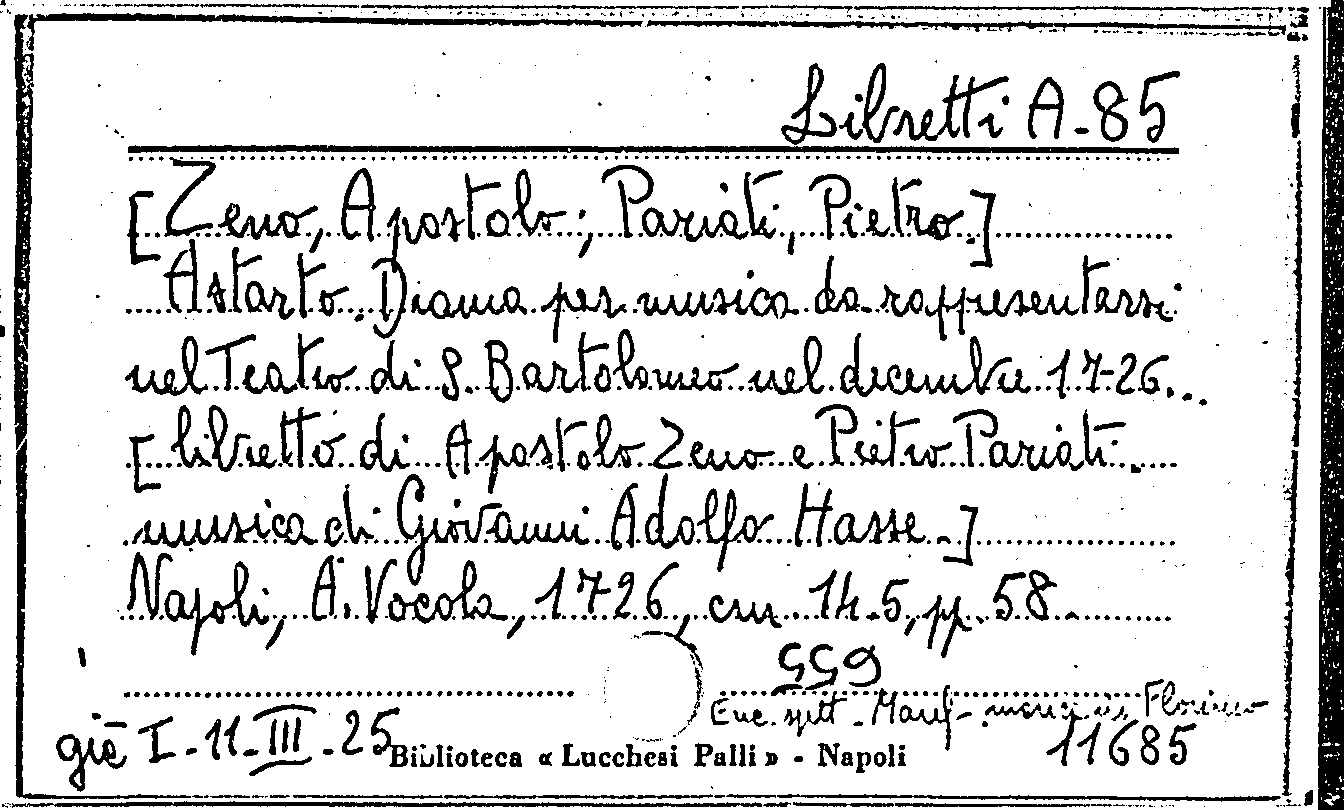 Libretti A-85
[Zeno, Apostolo; Pariati, Pietro.]
Astarto. Drama per musica da rappresentarsi
nel Teatro di S. Bartolomeo nel decembre 1726...
[libretto di Apostolo Zeno e Pietro Pariati.
musica di Giovanni Adolfo Hasse.]
Napoli, A. Vocola, 1726, cm. 14.5, pp. 58.
Enc. spett. - Manf - manca in Florimo
già I-11-III-25
11685
Biblioteca « Lucchesi Palli » - Napoli